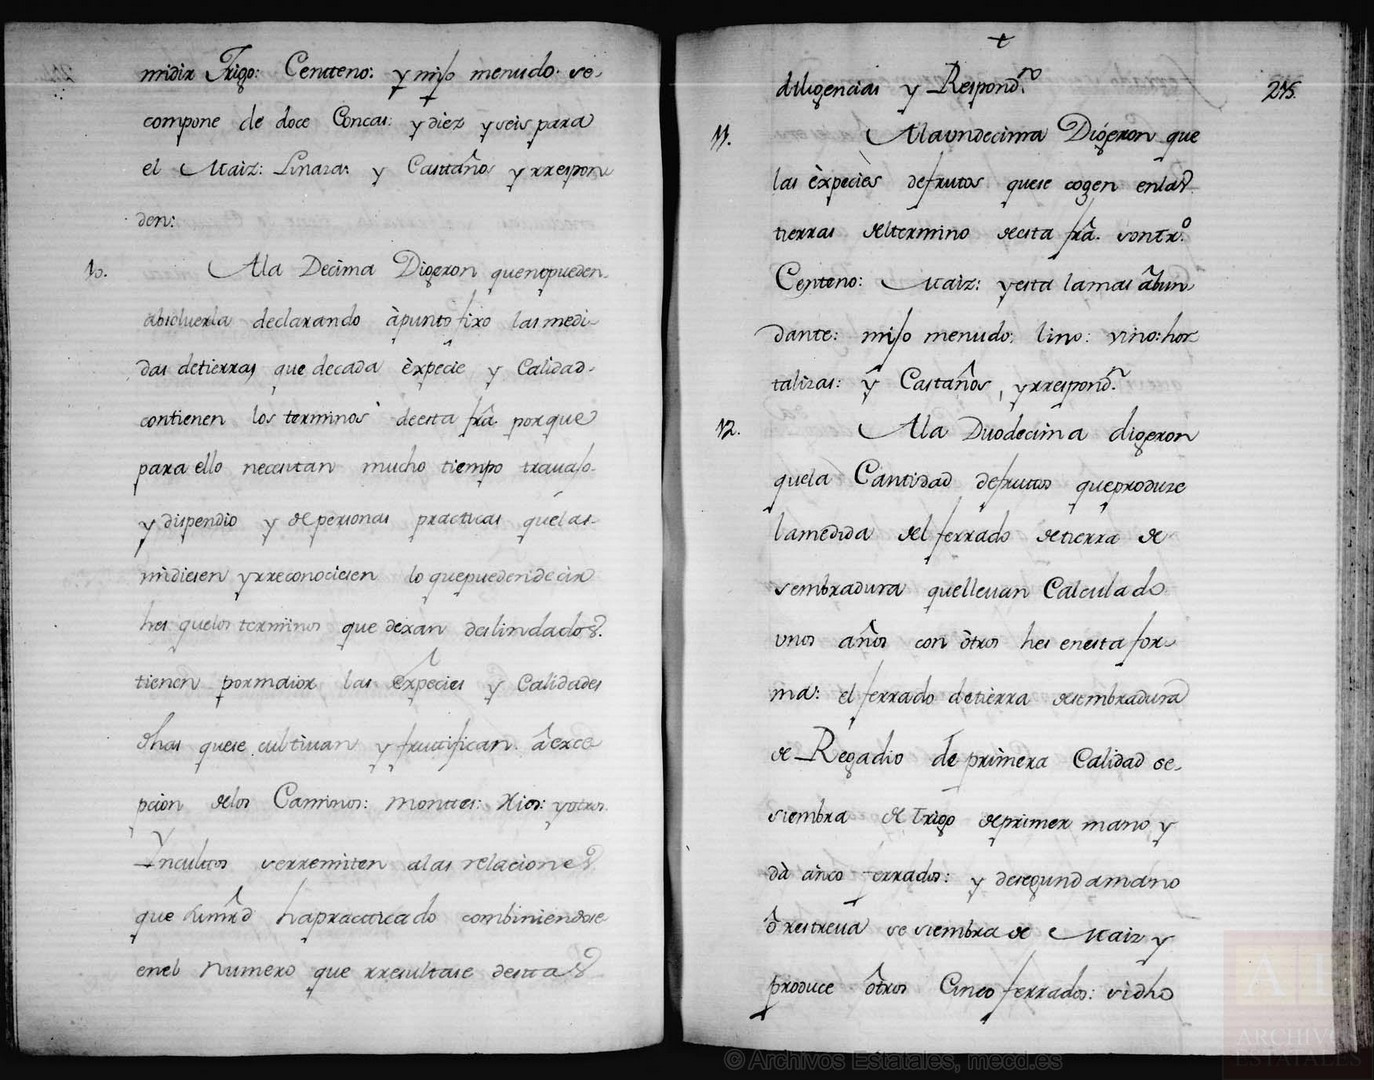 midir Trigo: Centteno: y mijo menudo. se-
compone de doce Concas: y diez y seis para
el Maiz: Linaza: y Casttañas y rrespon
den:
10. Ala Decima Digeron quenopueden-
absoluerla declarando àpunto fixo las medi-
das detierras que decada èxpecie y Calidad-
contienen los terminos deesta frâ. porque
para ello necesitan mucho tiempo travajo-
y dispendio y de personas practicas quelas-
midiesen y rreconociesen lo quepueden decir
hes quelos terminos que dexan deslindados.
tienen pormaior las êxpecies y Calidades
dhas quese cultiuan y fruttifican. âexce
pcion delos Caminos: Monttes: Rios: yotros.
Yncultos serremiten alas relaciones
que sumrd hapractticado combiniendose
enel numero que rresultase desttas
+
diligencias y Respondro.
275.
11. Alaundecima Digeron que
las èxpecies defrutos quese cogen enlas
tierras deltermino deesta frâ. sontro.
Centeno: Maiz: yesta lamas âbun
dante: mijo menudo: lino: vino: hor
talizas: ŷ Castaños, yrrespondn.
12. Ala Duodecima digeron
quela Cantidad defruttos queproduze
lamedida del ferrado detierra de
sembradura quelleuan Calculado
unos años con òtros hes enesta for
ma: el ferrado detierra desembradura
de Regadio de primera Calidad se-
siembra de Trigo deprimer mano y
dà cinco ferrados: y desegundamano
ô restreva se siembra de Maiz y
produce ôtros Cinco ferrados: sidho
© Archivos Estatales, mecd.es
AE
ARCHIVOS
ESTATALES